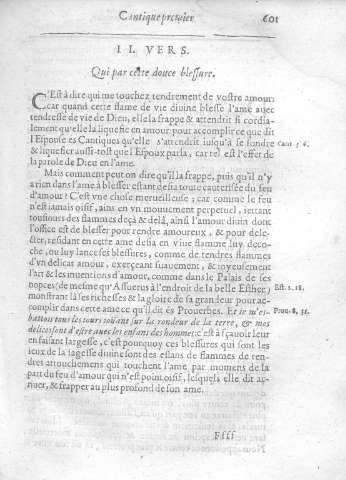 Cantique premier. 601
II. VERS.
Qui par cette douce blessure.
C'Est à dire qui me touchez tendrement de vostre amour:
car quand cette flame de vie divine blesse l'ame auec
tendresse de vie de Dieu, elle la frappe & attendrit si cordia-
lement qu'elle la liquefie en amour pour accomplir ce que dit
l'Espouse és Cantiques qu'elle s'attendrit iusqu'à se fondre
Cant. 5. 6.
& liquefier aussi-tost que l'Espoux parla, car tel est l'effet de
la parole de Dieu en l'ame.
Mais comment peut on dire qu'il la frappe, puis qu'il n'y
a rien dans l'ame à blesser estant desia toute cauterisée du feu
d'amour? C'est vne chose merueilleuse; car comme le feu
n'est iamais oisif, ains en vn mouuement perpetuel, iettant
tousiours des flammes deçà & delà, ainsi l'amour diuin dont
l'office est de blesser pour rendre amoureux, & pour dele-
cter, residant en cette ame desia en viue flamme luy deco-
che, ou luy lance ses blessures, comme de tendres flammes
d'vn delicat amour, exerçeant suauement, & ioyeusement
l'art & les inuentions d'amour, comme dans le Palais de ses
nopces (de mesme qu'Assuerus à l'endroit de la belle Esther)
Est. 2. 18.
monstrant là ses richesses & la gloire de sa grandeur pour ac-
complir dans cette ame ce qu'il dit és Prouerbes. Et ie m'es-
Prou. 8. 31.
battois tous les iours ioüant sur la rondeur de la terre, & mes
delices sont d'estre auec les enfans des hommes: c'est à sçauoir leur
en faisant largesse, c'est pourquoy ces blessures qui sont les
ieux de la sagesse diuine sont des eslans de flammes de ten-
dres attouchemens qui touchent l'ame par momens de la
part du feu d'amour qui n'est point oisif, lesquels elle dit ar-
riuer, & frapper au plus profond de son ame.
Ffff